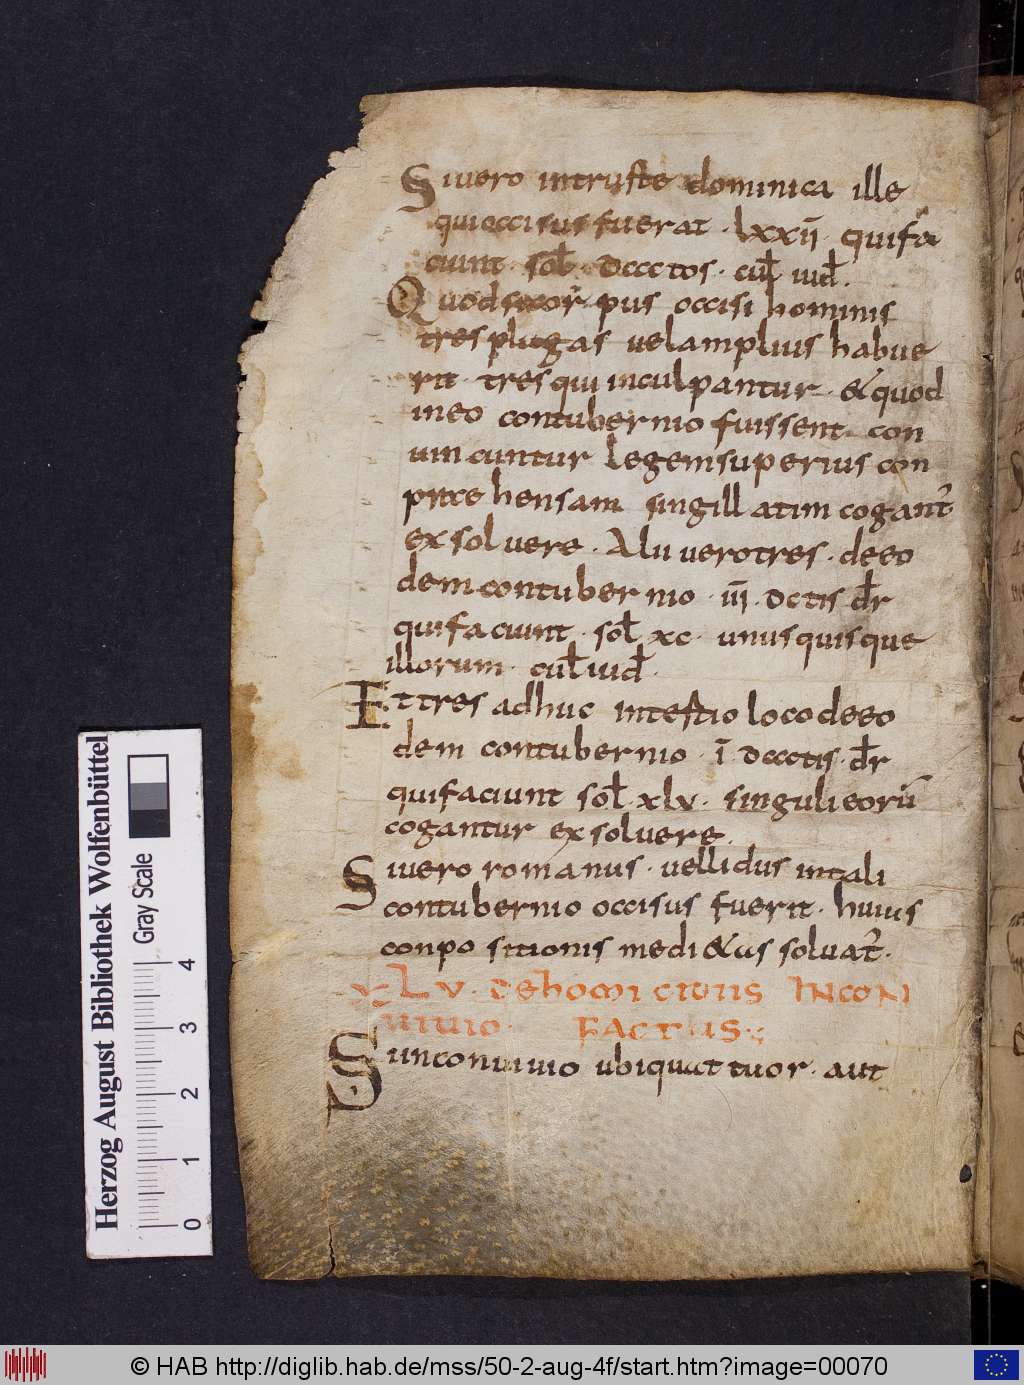 Siuero intruste dominica ille
qui occisus fuerat · lxxii · qui fa
ciunt · sol · dccctos · cul iud.
Quod si cor pus occisi hominis
tres plagas uel amplius habue
rit · tres qui inculpantur · & quod
in eo contubernio fuissent con
uincuntur legem superius con
prehensam singillatim cogant
exsoluere · Alii uero tres · de eo
dem contubernio · iii · dctis dr
qui faciunt · sol xc · unusquisque
illorum · cul iud ·
Et tres adhuc in testio loco de eo
dem contubernio · i · dccctis · dr
qui faciunt sol · xlv · singuli eorū
cogantur exsoluere.
Siuero romanus · uel lidus in tali
contubernio occisus fuerit · huius
conpositionis medi&as soluat ·
XLV · DE homicidiis IN CON
uiuio FACTIS
Si in conuiuio ubi quattuor · aut
Herzog August Bibliothek Wolfenbüttel
Gray Scale
0 1 2 3 4
© HAB http://diglib.hab.de/mss/50-2-aug-4f/start.htm?image=00070